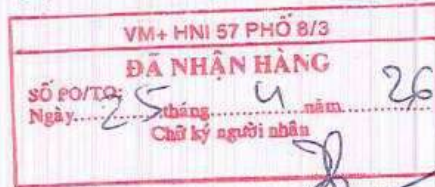 VM+ HNI 57 PHỐ 8/3
ĐÃ NHẬN HÀNG
SỐ PO/TO:
Ngày 25 tháng 4 năm 26
Chữ ký người nhân